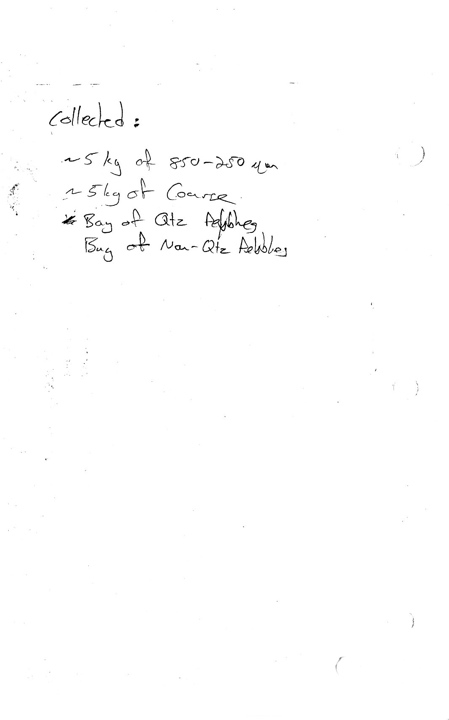 Collected:
~5 kg of 850-250 µm
~5kg of Coarse
Bag of Qtz Pebbles
Bag of Non-Qtz Pebbles